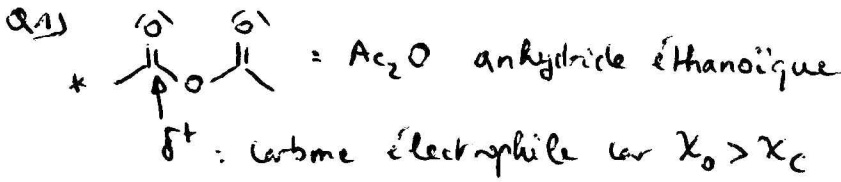 Q1)
* O O O = Ac₂O anhydride éthanoïque
δ⁺ : carbone électrophile car χ_O > χ_C